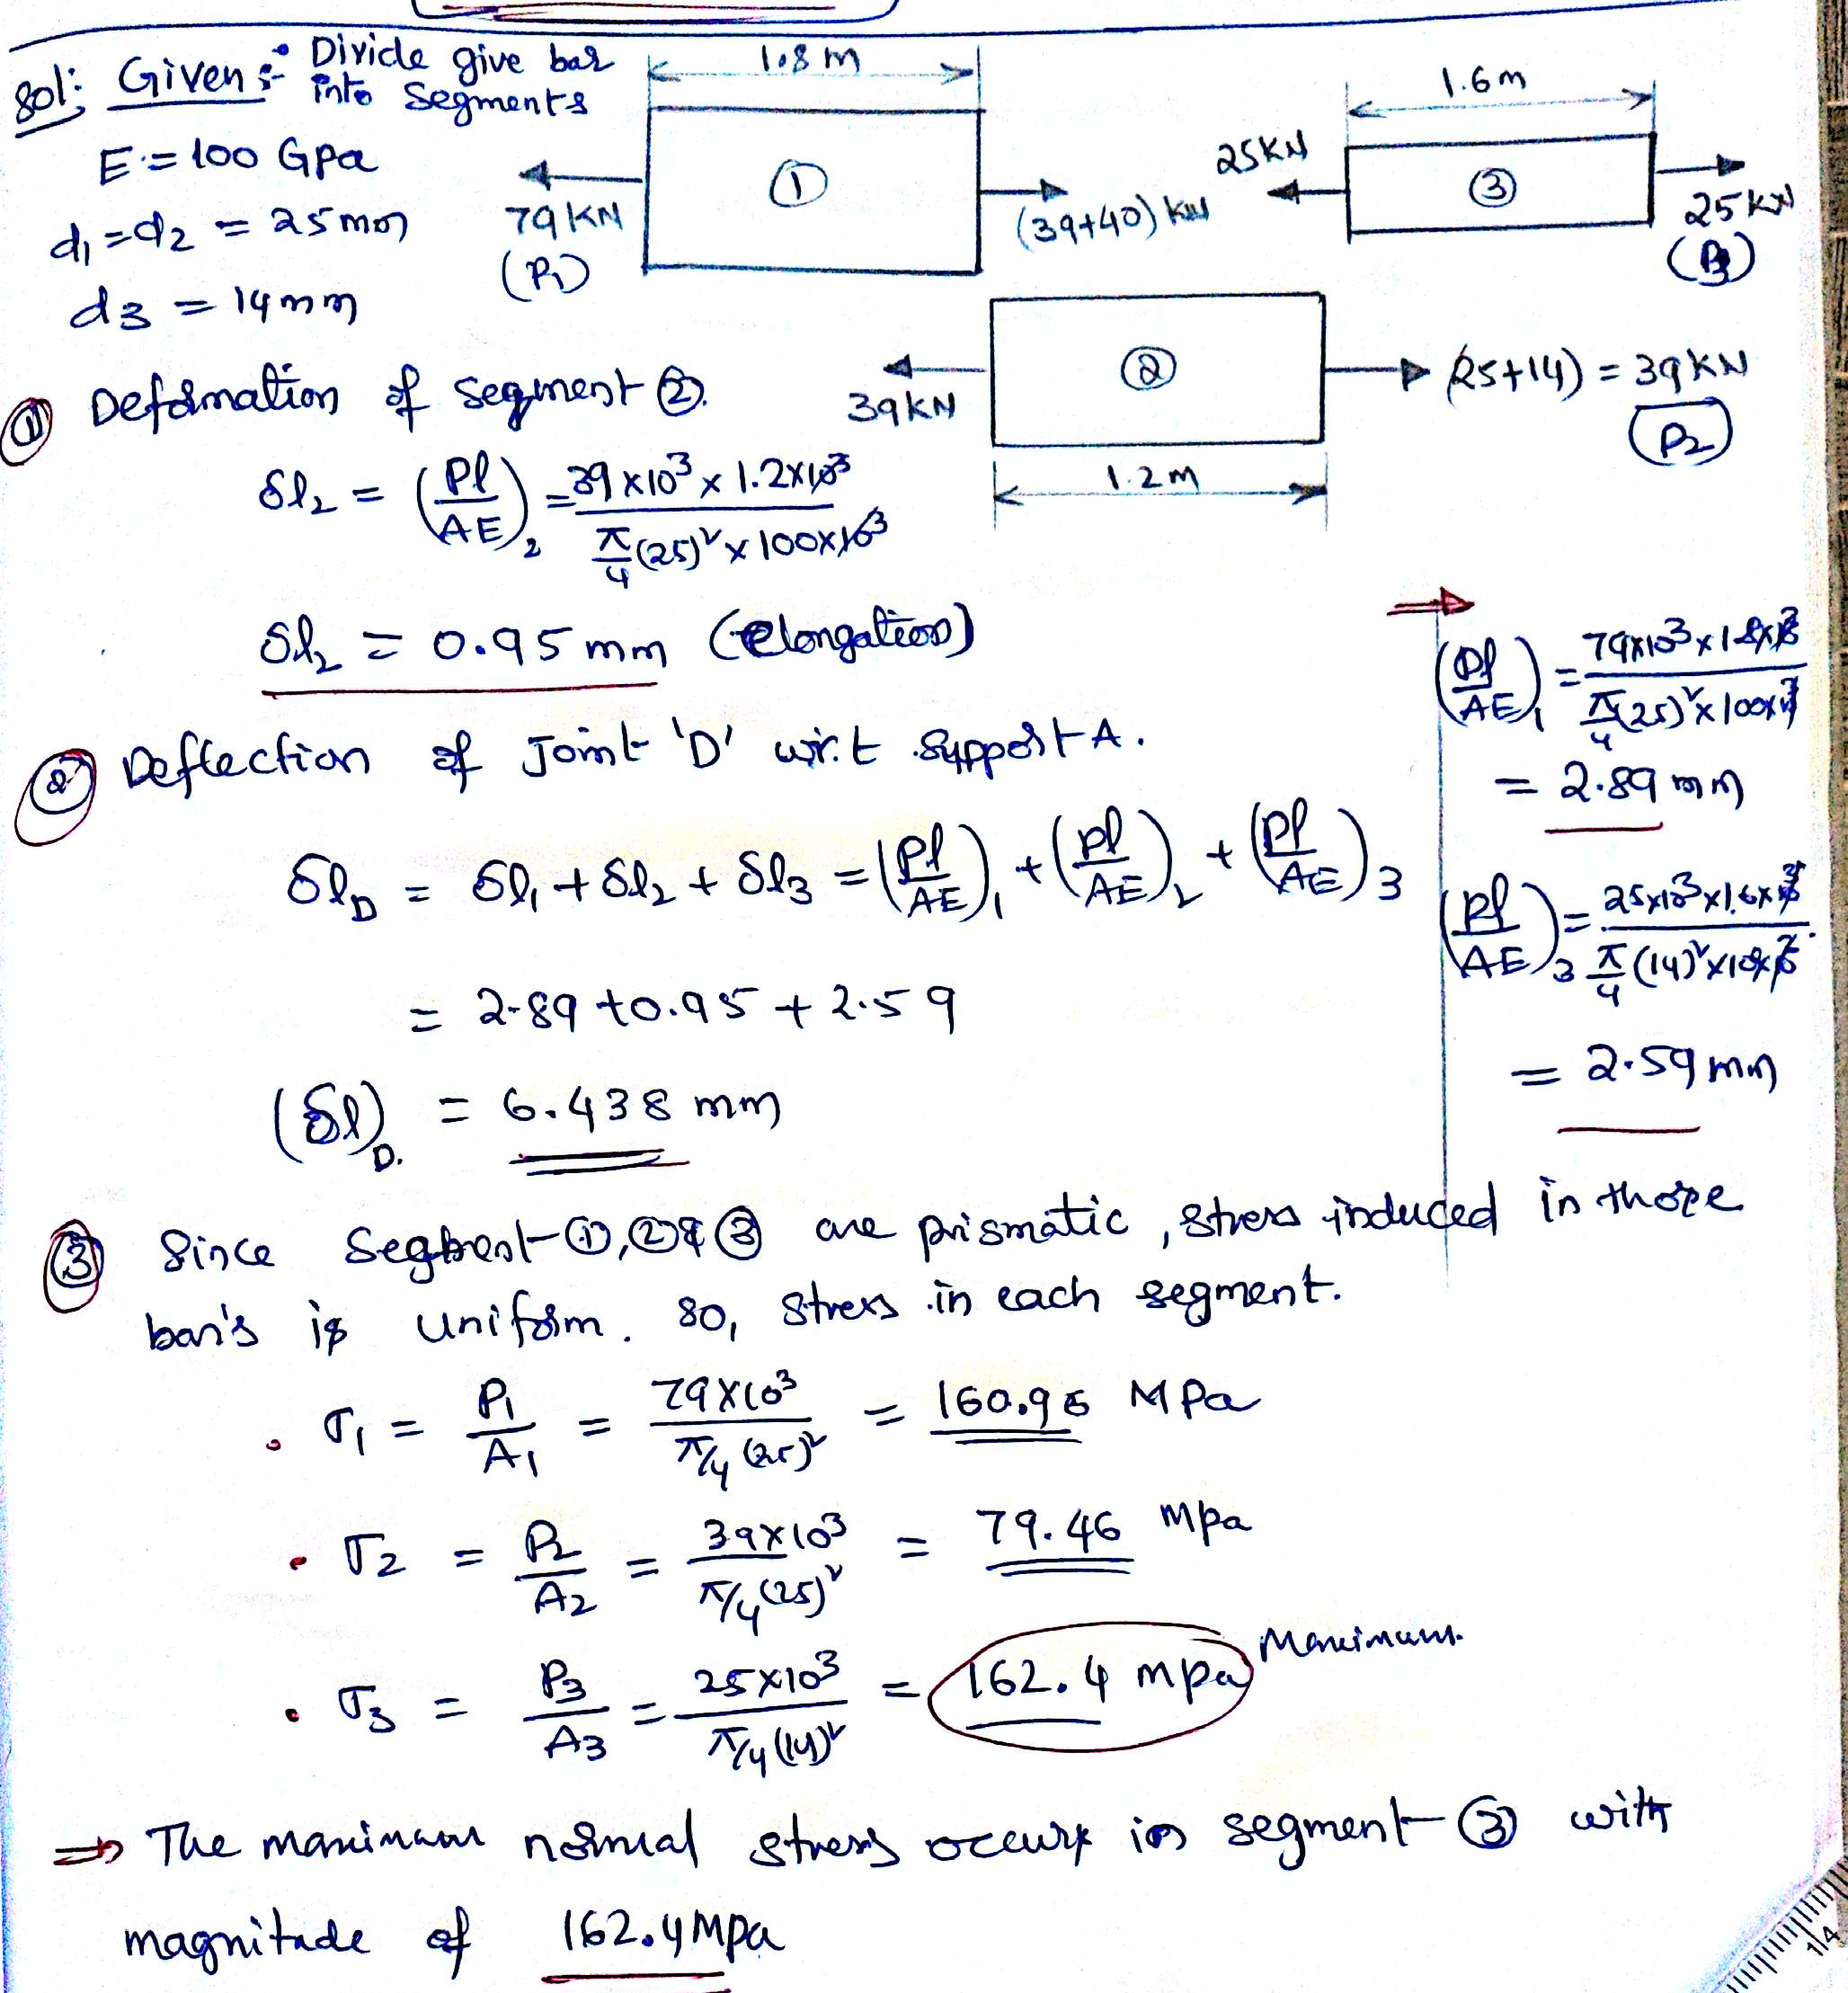 Sol: Given :- • Divide give bar
into segments
1.8 m
1.6m
E = 100 GPa
d1 = d2 = 25 mm
d3 = 14 mm
79 KN
(P1)
①
(39+40) KN
25KN
③
25 KN
(P3)
39KN
②
(25+14) = 39KN
(P2)
1.2 m
① Deformation of segment ②.
δl2 = (Pl/AE)2 = 39×10³ × 1.2×10³ / π/4 (25)² × 100×10³
δl2 = 0.95 mm (elongation)
② Deflection of Joint 'D' w.r.t Support A.
δlD = δl1 + δl2 + δl3 = (Pl/AE)1 + (Pl/AE)2 + (Pl/AE)3
= 2.89 + 0.95 + 2.59
(δl)D. = 6.438 mm
(Pl/AE)1 = 79×10³ × 1.8×10³ / π/4 (25)² × 100×10³
= 2.89 mm
(Pl/AE)3 = 25×10³ × 1.6×10³ / π/4 (14)² × 100×10³
= 2.59 mm
③ Since Segment ①, ② & ③ are prismatic, stress induced in those
bar's is uniform. So, stress in each segment.
• σ1 = P1/A1 = 79×10³ / π/4 (25)² = 160.96 MPa
• σ2 = P2/A2 = 39×10³ / π/4 (25)² = 79.46 MPa
• σ3 = P3/A3 = 25×10³ / π/4 (14)² = 162.4 MPa Maximum.
⇒ The maximum normal stress occurs in segment ③ with
magnitude of 162.4 MPa
1/4